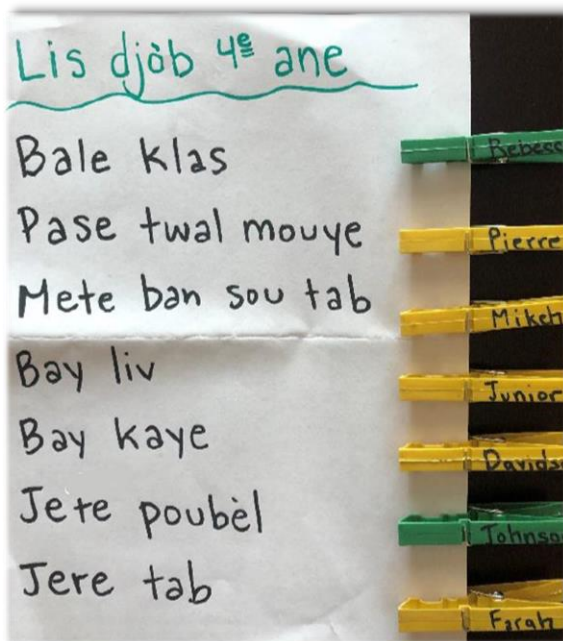 Lis djòb 4e ane
Bale klas
Pase twal mouye
Mete ban sou tab
Bay liv
Bay kaye
Jete poubèl
Jere tab
Pierre
Junior
Farah